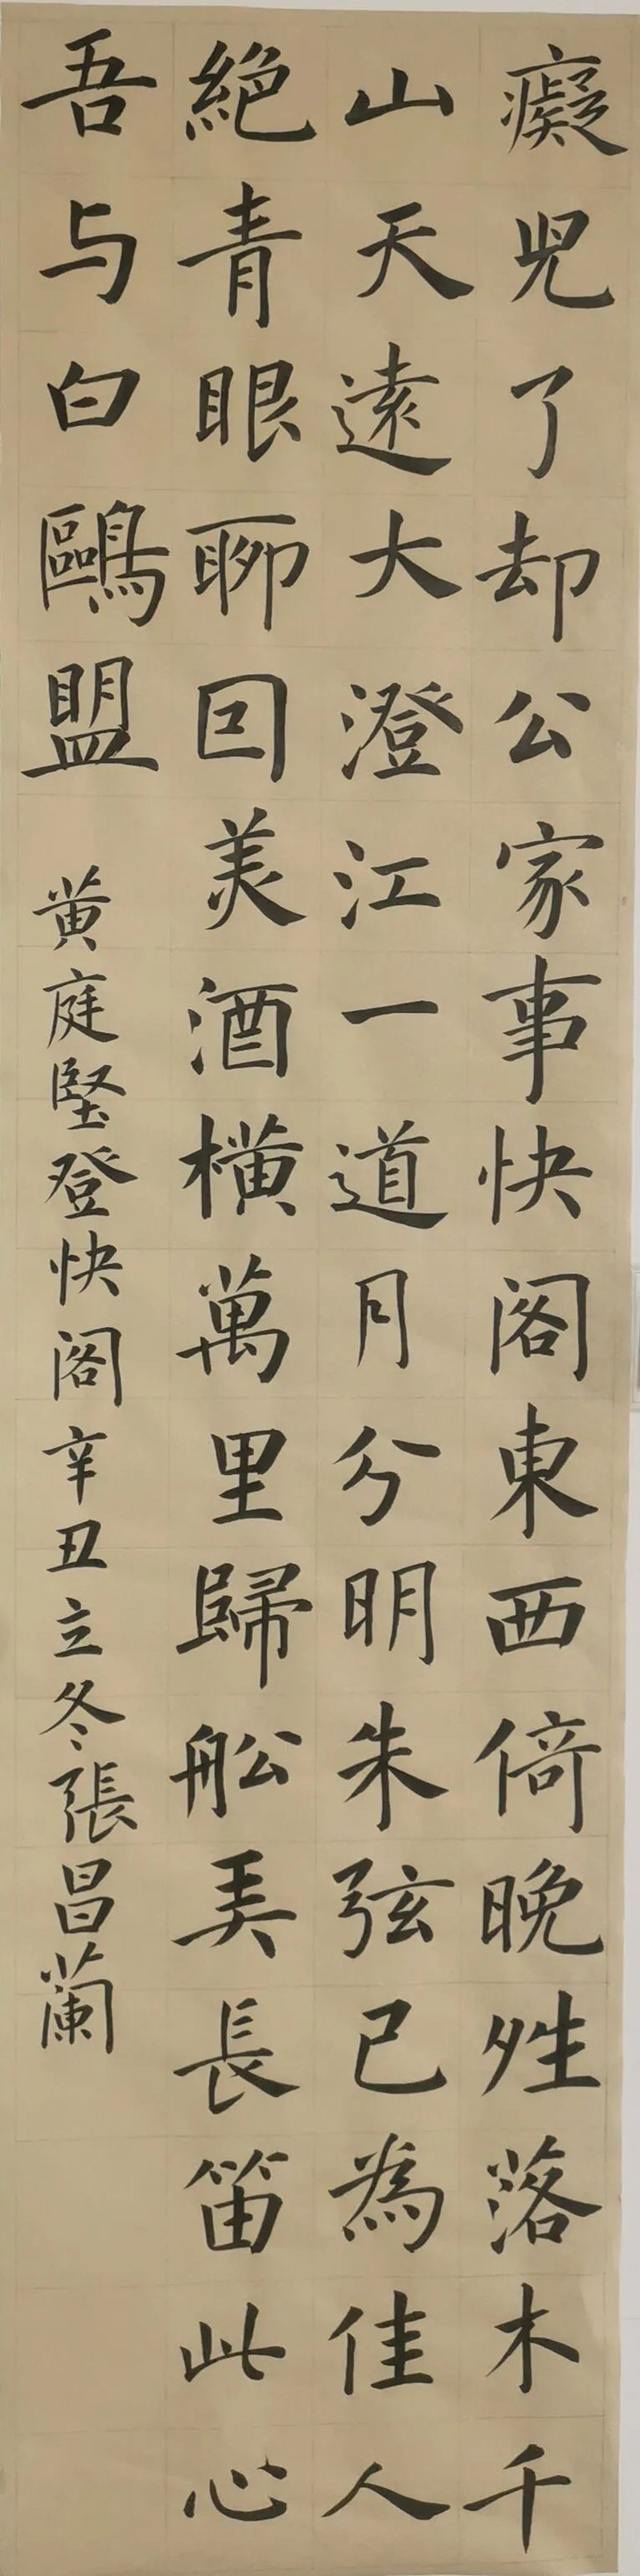 癡兒了却公家事快阁東西倚晚夝落木千
山天遠大澄江一道月分明朱弦已為佳人
絶青眼聊回美酒横萬里歸舩弄長笛此心
吾与白鷗盟 黄庭堅登快阁辛丑立冬張昌蘭